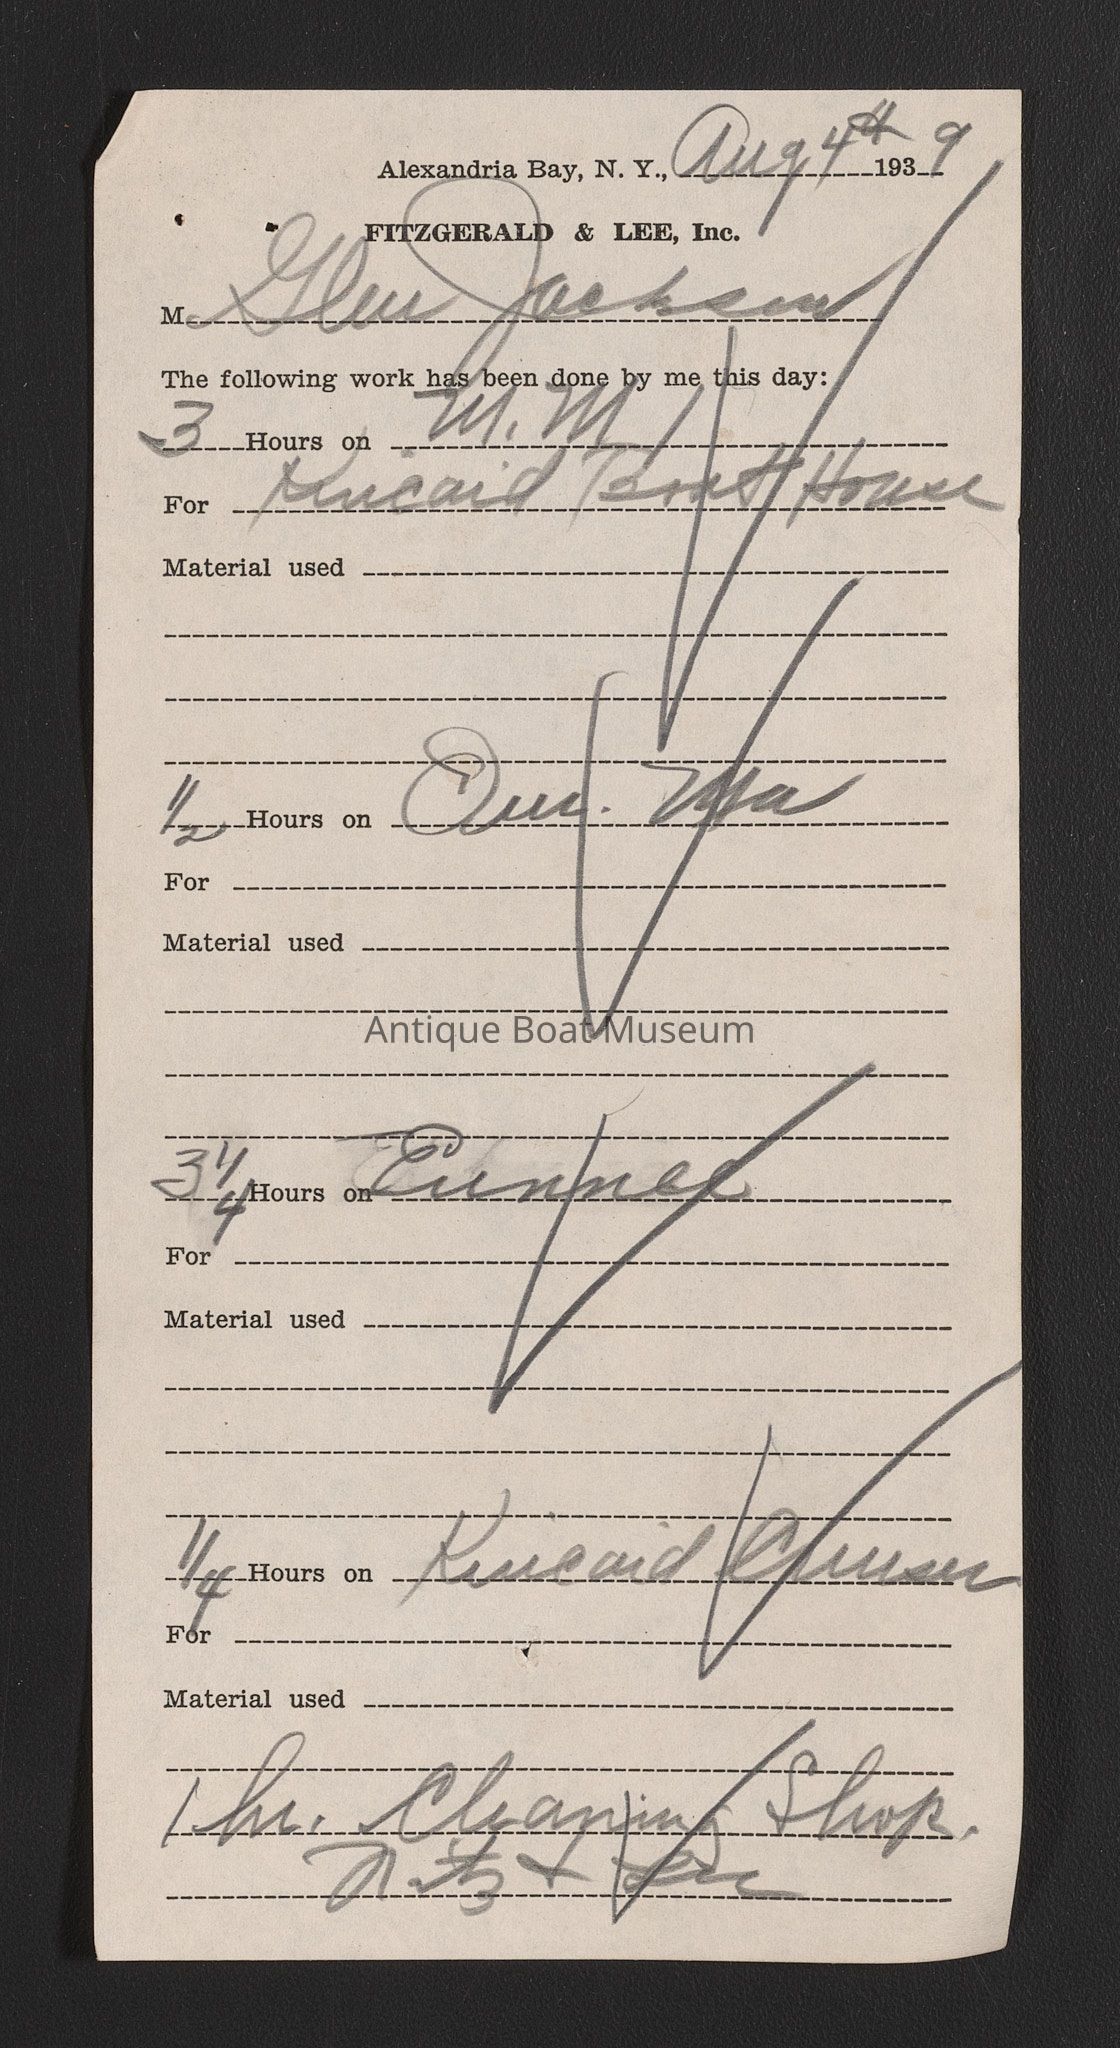 Alexandria Bay, N. Y., Aug 4th 1939
FITZGERALD & LEE, Inc.
M. Glen Jackson
The following work has been done by me this day:
3 Hours on M. M
For Kincaid Boat House
Material used
1/2 Hours on
For
Material used
Antique Boat Museum
3 1/4 Hours on
For
Material used
1/4 Hours on Kincaid Cruiser
For
Material used
1 hr. Cleaning Shop.
Fitz & Lee